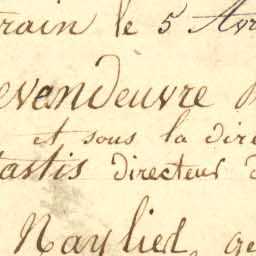 train le 5 Avr
evendeuvre
et sous la dire
tastis directeur d
Naylies, ge